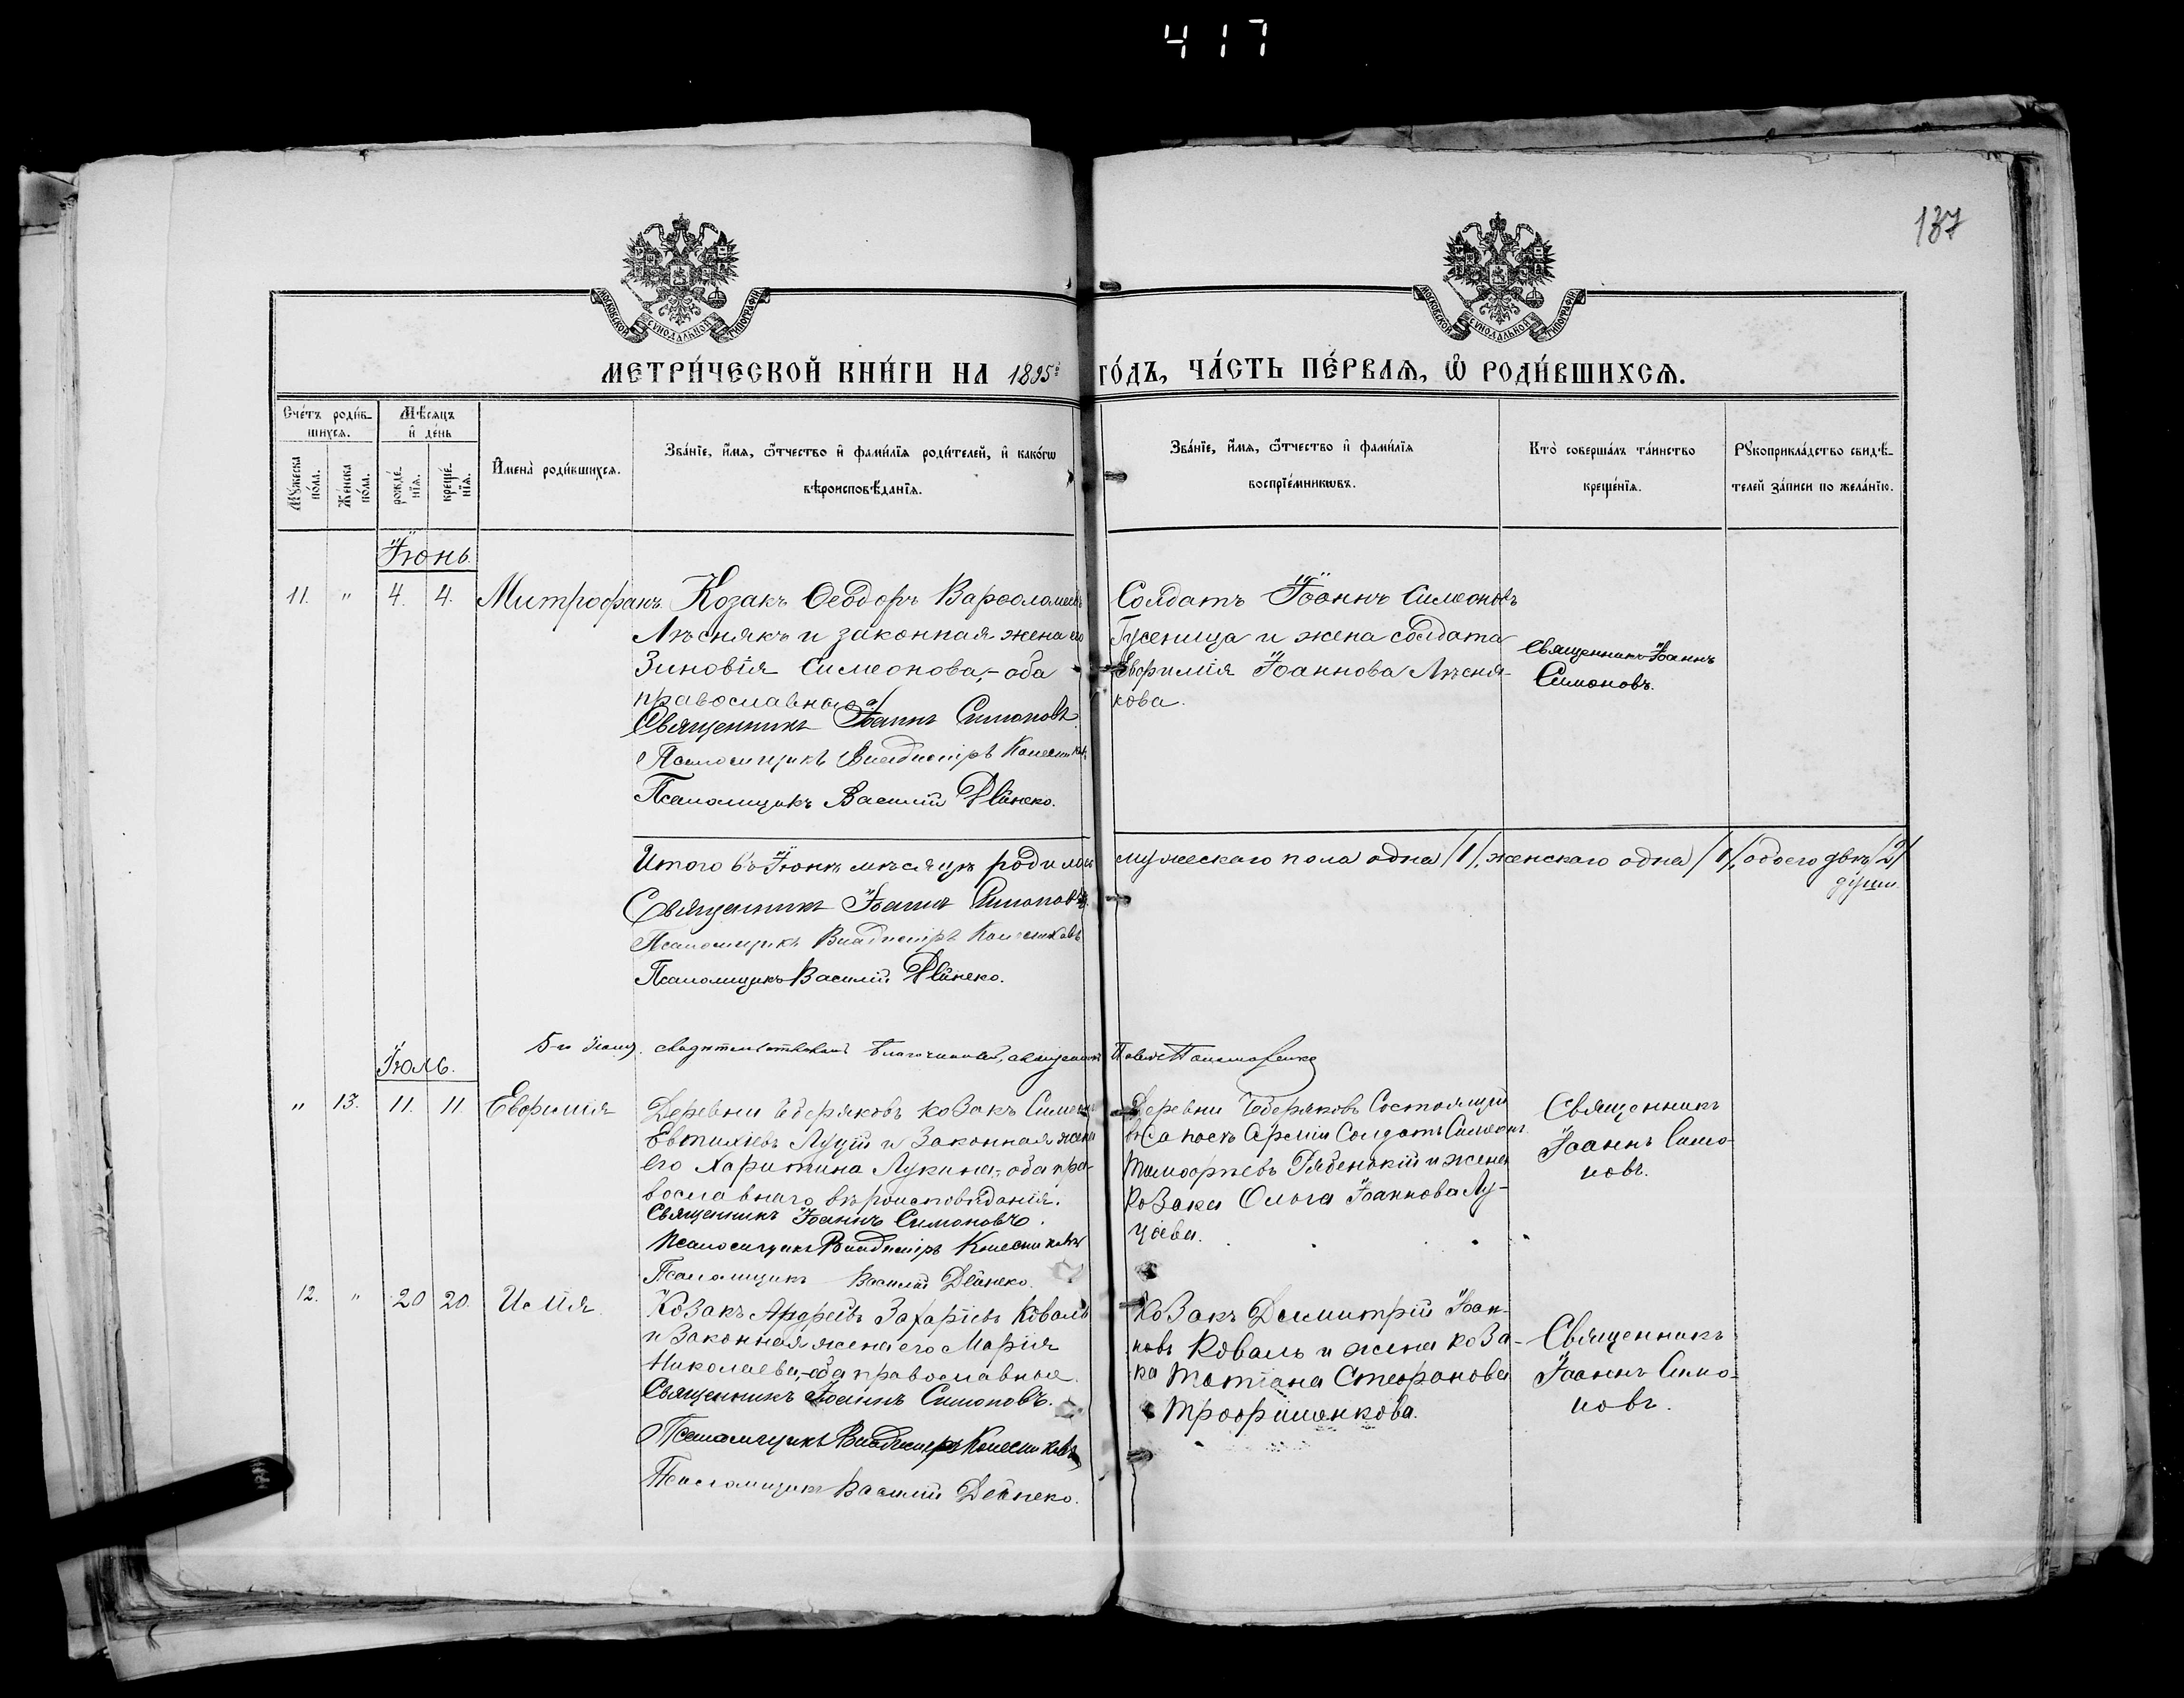 417
137
МОСКОВСКОЙ СѴНОДАЛЬНОЙ ТИПОГРАФІИ
МОСКОВСКОЙ СѴНОДАЛЬНОЙ ТИПОГРАФІИ
МЕТРИ́ЧЕСКОЙ КНИ́ГИ НА 1895й ГО́ДЪ, ЧА́СТЬ ПЕ́РВАѦ, Ѽ РОДИ́ВШИХСѦ.
Сче́тъ роди́в-
шихсѧ.
Мѣ́сѧцъ
и҆ де́нь
Мꙋ́жеска
по́ла.
Же́нска
по́ла.
рожде́-
нїѧ.
креще́-
нїѧ.
И҆мена̀ роди́вшихсѧ.
Зва́нїе, и҆́мѧ, ѻ҆́тчество и҆ фами́лїѧ роди́телей, и҆ како́гѡ
вѣроисповѣ́данїѧ.
Зва́нїе, и҆́мѧ, ѻ҆́тчество и҆ фами́лїѧ
воспрїе́мникѡвъ.
Кто̀ соверша́лъ та́инство
креще́нїѧ.
Рꙋкоприкла́дство свидѣ́-
телей за́писи по жела́нїю.
Іюнь.
11. " 4. 4. Митрофанъ
Козакъ Ѳеодоръ Варѳоломеевъ
Лѣснякъ и законная жена его
Зиновія Симеонова,- оба
православные
Священникъ Іоаннъ Симоновъ.
Псаломщикъ Владиміръ Колесниковъ
Псаломщикъ Василій Дейнеко.
Солдатъ Іоаннъ Симеоновъ
Гусеница и жена солдата
Евфимія Іоаннова Лѣсня-
кова.
Священникъ Іоаннъ
Симоновъ.
Итого въ Іюнѣ мѣсяцѣ родилось мужескаго пола одна /1/, женскаго одна /1/, обоего двѣ /2/
души.
Священникъ Іоаннъ Симоновъ.
Псаломщикъ Владиміръ Колесниковъ
Псаломщикъ Василій Дейнеко.
5-го Іюля, свидѣтельствовалъ Благочинный, священникъ Павелъ
Іюль.
" 13. 11. 11. Евфимія
Деревни козакъ Симеонъ
Евтихіевъ Луцій и законная жена
его Харитина Лукина,- оба пра-
вославнаго вѣроисповѣданія.
Священникъ Іоаннъ Симоновъ.
Псаломщикъ Владиміръ Колесниковъ
Псаломщикъ Василій Дейнеко.
Деревни Состоящій
въ Запасѣ Арміи Солдатъ Симеонъ
Тимофѣевъ Рябенькій и жена
козака Ольга Іоаннова Лу-
ціева.
Священникъ
Іоаннъ Симо-
новъ.
12. " 20 20. Илія.
Козакъ Андрей Захаріевъ Коваль
и законная жена его Марія
Николаева,- оба православные.
Священникъ Іоаннъ Симоновъ.
Псаломщикъ Владиміръ Колесниковъ
Псаломщикъ Василій Дейнеко.
Козакъ Димитрій Іоан-
новъ Коваль и жена коза-
ка Татіана Стефанова
Трофименкова.
Священникъ
Іоаннъ Симо-
новъ.